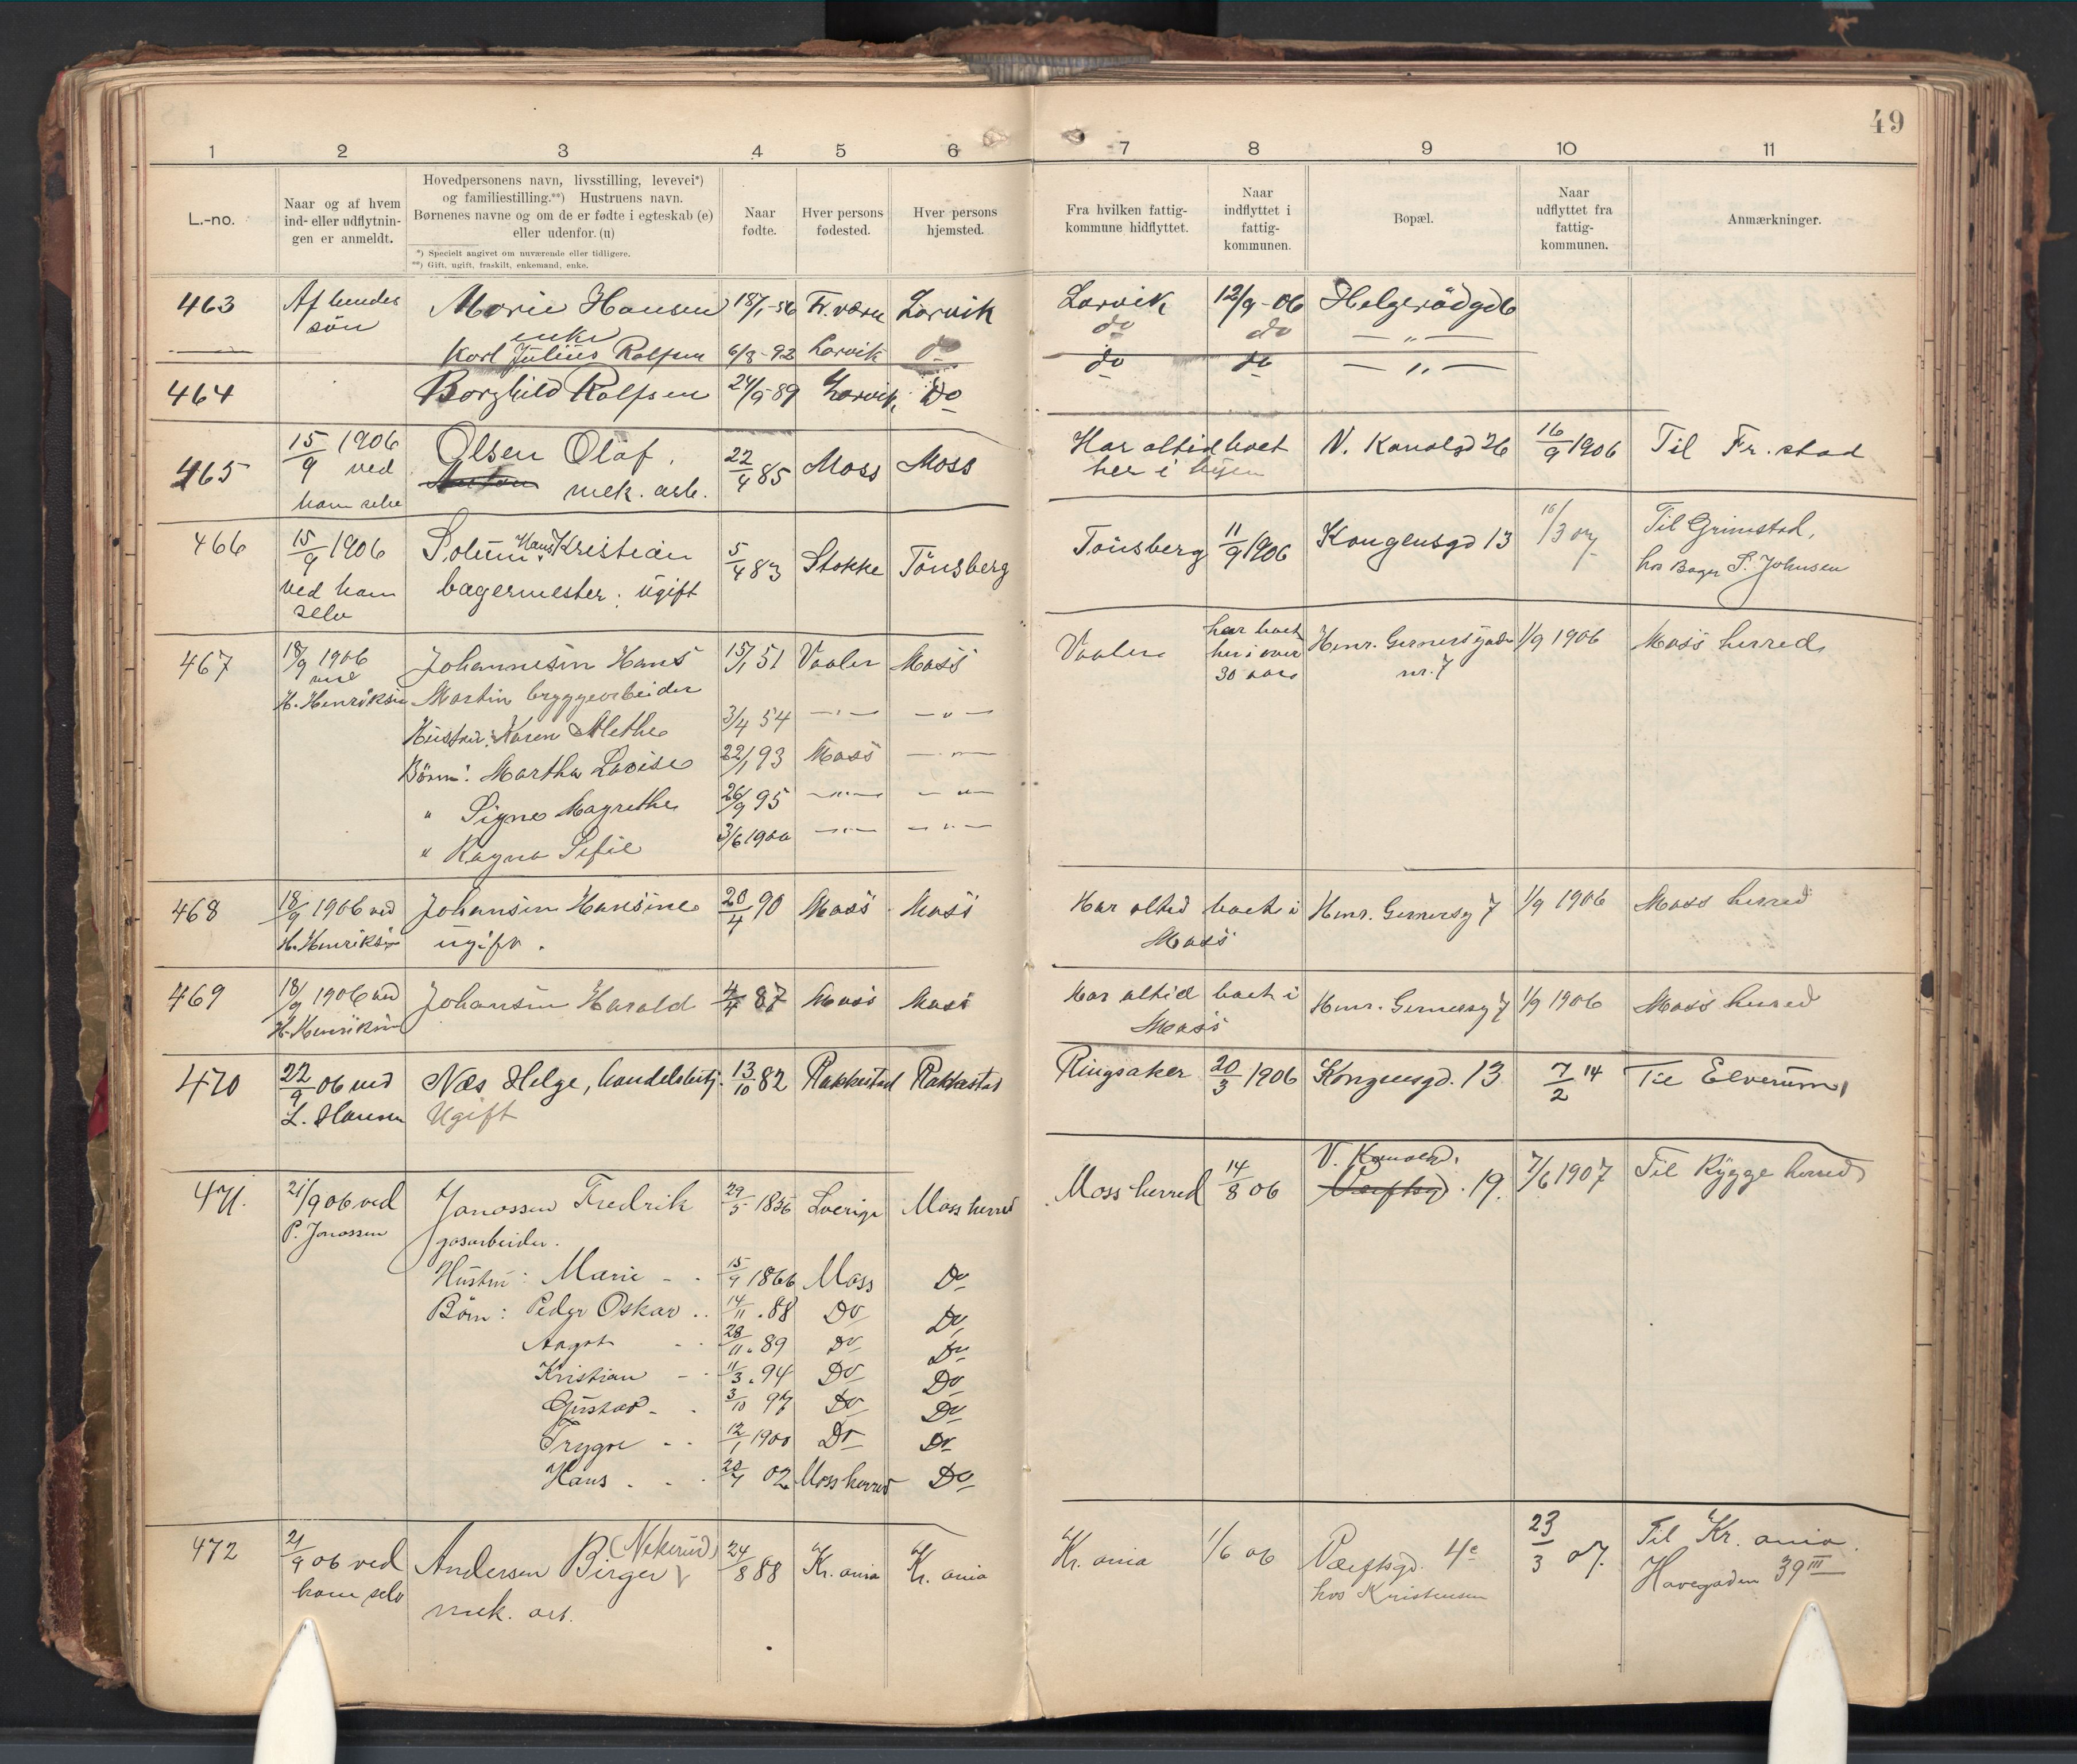 49
1 2 3 4 5 6 7 8 9 10 11
L.-no.
Naar og af hvem
ind- eller udflytnin-
gen er anmeldt.
Hovedpersonens navn, livsstilling, levevei*)
og familiestilling.**) Hustruens navn.
Børnenes navne og om de er fødte i egteskab (e)
eller udenfor. (u)
*) Specielt angivet om nuværende eller tidligere.
**) Gift, ugift, fraskilt, enkemand, enke.
Naar
fødte.
Hver persons
fødested.
Hver persons
hjemsted.
Fra hvilken fattig-
kommune hidflyttet.
Naar
indflyttet i
fattig-
kommunen.
Bopæl.
Naar
udflyttet fra
fattig-
kommunen.
Anmærkninger.
463 Af hendes Marie Hansen 18/1-56 Fr.værn Larvik Larvik 12/9-06 Helgerödgd 6
sön enke do do — „ —
Karl Julius Rolfsen 6/8-92 Larvik do do do — „ —
464 Borghild Rolfsen 24/9-89 Larvik Do
465 15/9 1906 Olsen Olaf. 22/4 85 Moss Moss Har altid boet N. Kanalgd 26 16/9 1906 Til Fr.stad
ved her i byen
ham selv mek. arb.
466 15/9 1906 Solum Hans Kristian 5/4 83 Stokke Tönsberg Tönsberg 11/9 1906 Kongensgd 13 16/3 07 Til Grimstad,
ved ham bagermester: ugift hos Bager S. Johnsen
selv
467 18/9 1906 Johannesen Hans 15/1 51 Vaaler Moss Vaaler har boet Henr. Gerners gade 1/9 1906 Moss herred
ved her i over nr. 7
H. Henriksen Martin bryggearbeider 30 aar
Hustru: Karen Alethe 3/4 54 — „ — — „ —
Börn: Martha Lovise 22/1 93 Moss — „ —
„ Signe Magrethe 26/9 95 — „ — — „ —
„ Ragna Sofie 3/6 1900 — „ — — „ —
468 18/9 1906 ved Johansen Hansine 20/4 90 Moss Moss Har altid boet i Henr. Gernersg 7 1/9 1906 Moss herred
H. Henriksen ugift. Moss
469 18/9 1906 ved Johansen Harald 4/4 87 Moss Moss Har altid boet i Henr. Gernersg 7 1/9 1906 Moss herred
H. Henriksen Moss
470 22/9 06 ved Næs Helge, handelsbetj. 13/10 82 Rakkestad Rakkestad Ringsaker 20/3 1906 Kongensgd. 13 7/2 14 Til Elverum,
L. Hansen Ugift
V. Kanalgd.
471. 21/9 06 ved Jonassen Fredrik 29/5 1856 Sverige Moss herred Moss herred 14/8 06 Værftsgd. 19. 7/6 1907 Til Rygge herred
P. Jonassen gasarbeider.
Hustru: Marie - - 15/9 1866 Moss Do
Börn: Peder Oskar .. 14/11 . 88 Do Do
Aagot - - 28/11 . 89 Do Do
Kristian - - 11/3 . 94 Do Do
Gustav - . 3/10 97 Do Do
Trygve - - 12/1 1900 Do Do
Hans . - . 20/7 02 Moss herred Do
472 21/9 06 ved Andersen Birger (Nekerud) 24/8 88 Kr.ania Kr.ania Kr.ania 1/6 06 Værftsgd. 4c 23/3 07. Til Kr.ania.
ham selv mek. arb. hos Kristensen Havegaden 39 III